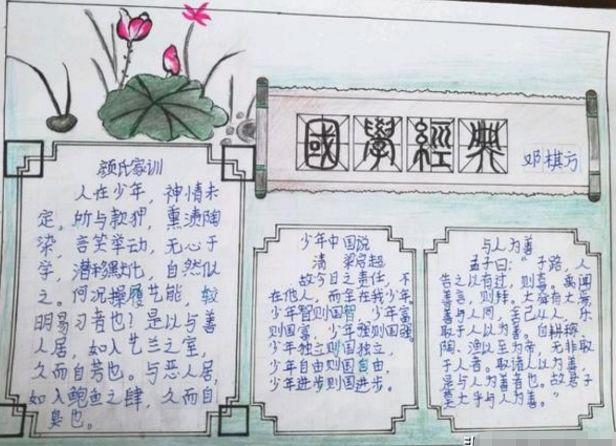 國學經典
邓棋方
颜氏家训
人在少年，神情未
定。所与款狎，熏渍陶
染，言笑举动，无心于
学，潜移默化，自然似
之。何况操履艺能，较
明易习者也！是以与善
人居，如入芝兰之室，
久而自芳也。与恶人居，
如入鲍鱼之肆，久而自
臭也。
少年中国说
清 梁启超
故今日之责任，不
在他人，而全在我少年。
少年智则国智，少年富
则国富，少年强则国强。
少年独立则国独立，
少年自由则国自由，
少年进步则国进步。
与人为善
孟子曰："子路，人
告之以有过，则喜。禹闻
善言，则拜。大舜有大焉，
善与人同，舍己从人，乐
取于人以为善。自耕稼、
陶、渔以至为帝，无非取
于人者。取诸人以为善，
是与人为善者也。故君子
莫大乎与人为善。"